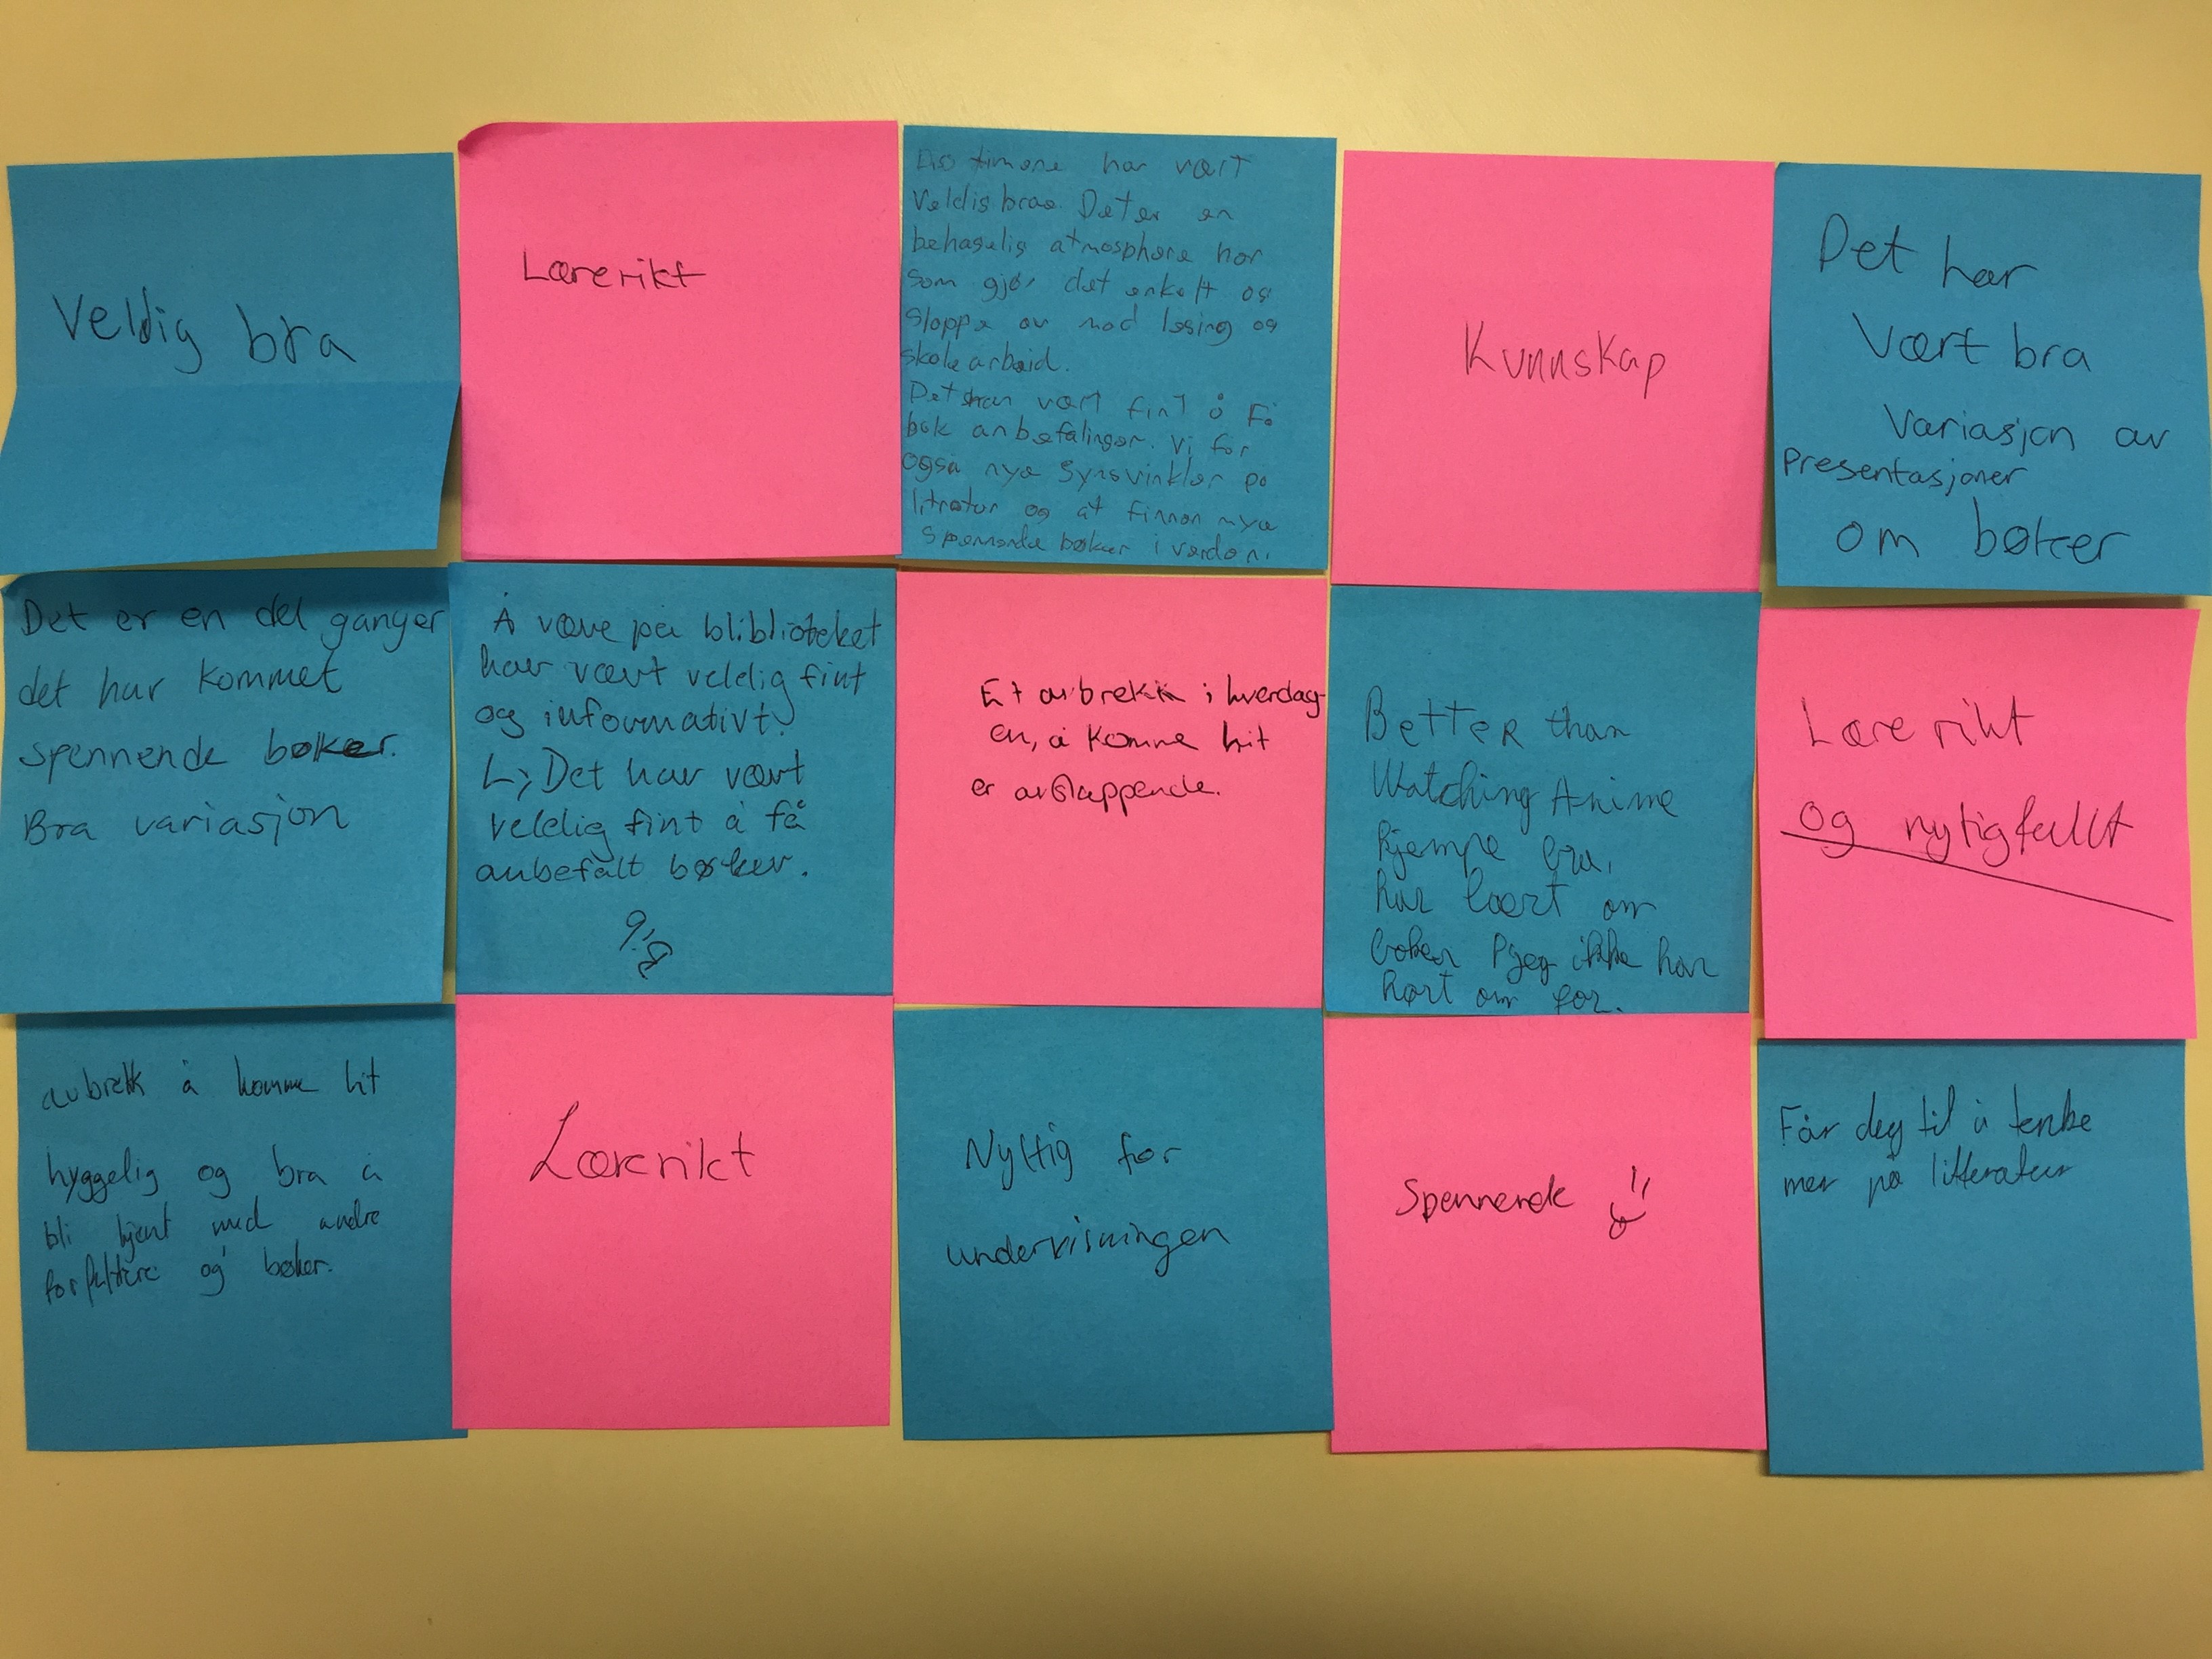 Veldig bra
Lærerikt
timene har vært
Veldig brae. Det er en
behagelig atmosphære her
som gjør det enkelt og
sloppe av med lesing og
skolearbeid.
Det har vært fint å Få
bok anbefalinger. Vi får
også nye synsvinkler på
litratur og at finnen nye
spennende bøker i verden.
Kunnskap
Det har
Vært bra
Variasjon av
Presentasjoner
om bøker
Det er en del ganger
det har kommet
spennende bøker.
Bra variasjon
Å være på bliblioteket
har vært veldig fint
og informativt.
L; Det har vært
veldig fint å få
anbefalt bøker.
Et avbrekk i hverdag-
en, å komme hit
er avslappende.
Better than
Watching Anime
kjempe bra,
har lært om
bøker jeg ikke har
hørt om før.
Lære rikt
og nytigfullt
avbrekk å komme hit
hyggelig og bra å
bli kjent med andre
forfattere og bøker.
Lærerikt
Nyttig for
undervisningen
Spennende
Får deg til å tenke
mer på litteratur